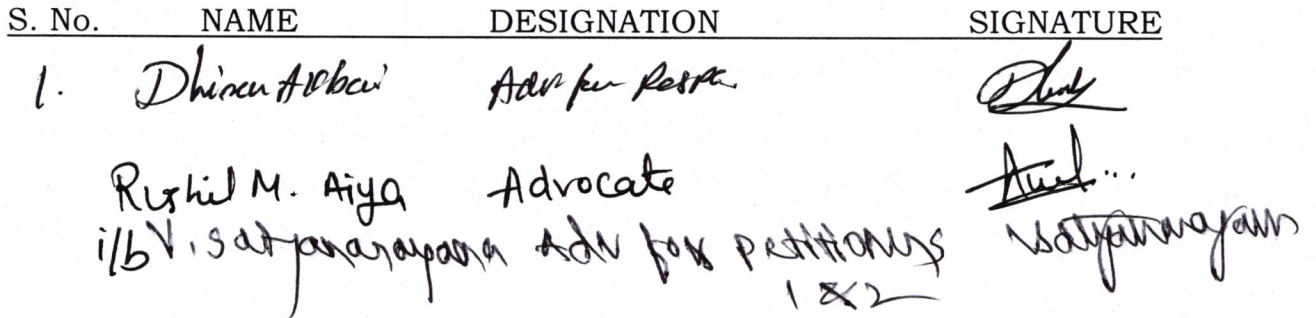 S. No. NAME DESIGNATION SIGNATURE
1. Adv for
Rushil M. Aiya Advocate
i/b V. Satyanarayana Adv for petitioners Vsatyanarayana
1 & 2